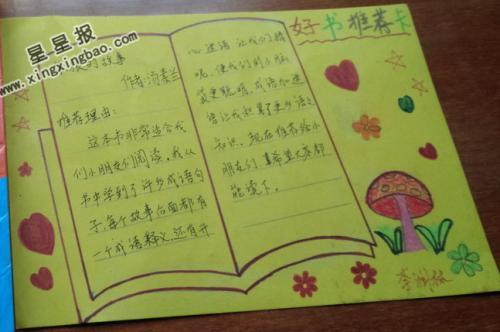 星星报
www.xingxingbao.com
好书推荐卡
故事
作者:汤素兰
推荐理由:
这本书非常适合我
们小朋友们阅读。我从
书中学到了许多成语句
子,每个故事后面都有
一个成语释义,还有开
心迷语,让我们猜
呢,使我们的小脑
袋更聪明,成语加速
让我积累了更多语文
知识。现在推荐给小
朋友们,希望大家都
能读下。
李